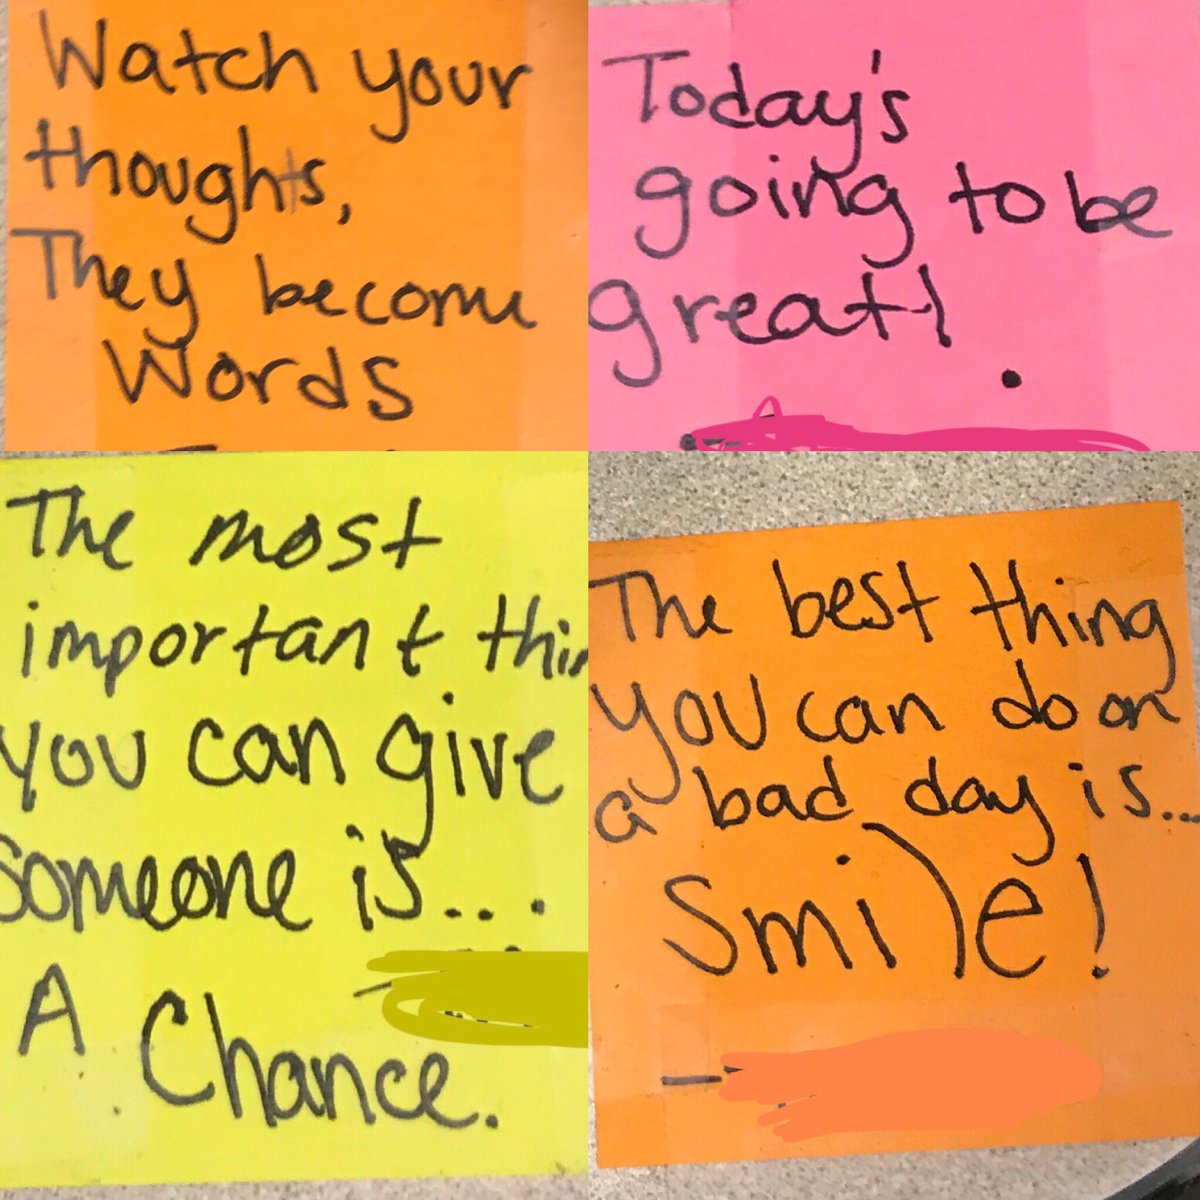 Watch your
thoughts,
They become
Words
Today's
going to be
great!
The most
important thin
you can give
someone is...
A Chance.
The best thing
you can do on
a bad day is...
Smile!